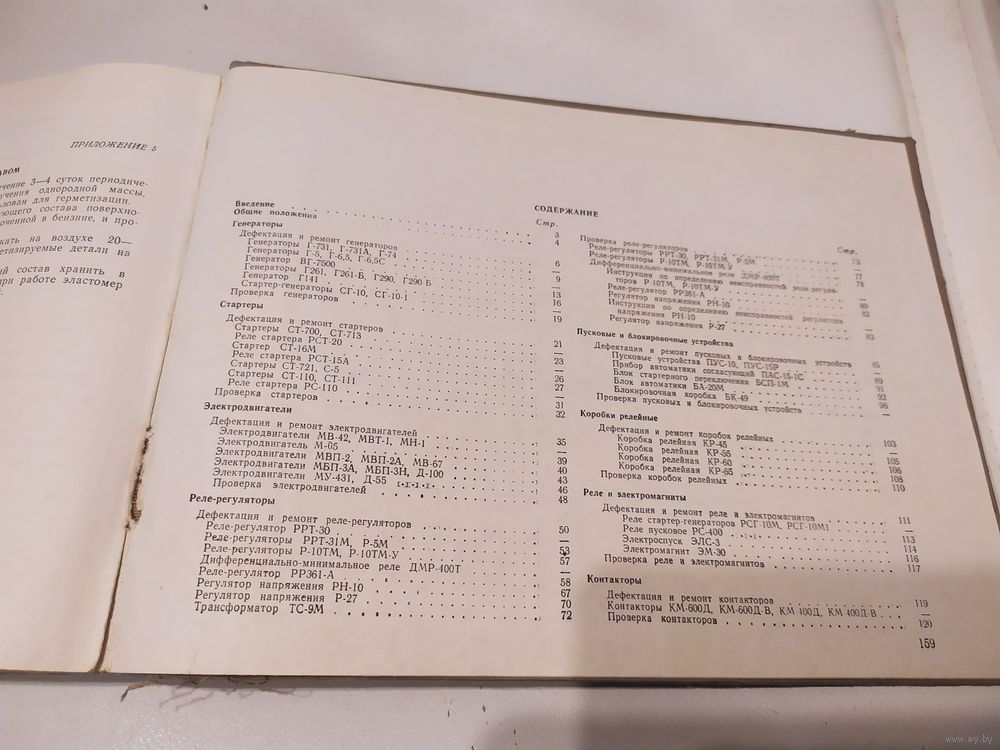 ПРИЛОЖЕНИЕ 5
3—4 суток периодиче-
однородной массы,
для герметизации.
состава поверхно-
в бензине, и про-
на воздухе 20—
детали на
состав хранить в
при работе эластомер
СОДЕРЖАНИЕ
Стр.
Введение 3
Общие положения 4
Генераторы
Дефектация и ремонт генераторов 6
Генераторы Г-731, Г-731А, Г-74 —
Генераторы Г-5, Г-6,5, Г-6,5С 9
Генератор ВГ-7500 —
Генераторы Г261, Г261-Б, Г290, Г290 Б 13
Генератор Г141 16
Стартер-генераторы СГ-10, СГ-10-1 —
Проверка генераторов 19
Стартеры
Дефектация и ремонт стартеров 21
Стартеры СТ-700, СТ-713 —
Реле стартера РСТ-20 23
Стартер СТ-16М —
Реле стартера РСТ-15А 26
Стартеры СТ-721, С-5 27
Стартеры СТ-110, СТ-111 —
Реле стартера РС-110 31
Проверка стартеров 32
Электродвигатели
Дефектация и ремонт электродвигателей 35
Электродвигатели МВ-42, МВТ-1, МН-1 —
Электродвигатель М-05 39
Электродвигатели МВП-2, МВП-2А, МВ-67 40
Электродвигатели МБП-3А, МБП-3Н, Д-100 43
Электродвигатели МУ-431, Д-55 46
Проверка электродвигателей 48
Реле-регуляторы
Дефектация и ремонт реле-регуляторов 50
Реле-регулятор РРТ-30 —
Реле-регуляторы РРТ-31М, Р-5М 53
Реле-регуляторы Р-10ТМ, Р-10ТМ-У 57
Дифференциально-минимальное реле ДМР-400Т —
Реле-регулятор РР361-А 58
Регулятор напряжения РН-10 67
Регулятор напряжения Р-27 70
Трансформатор ТС-9М 72
Стр.
Проверка реле-регуляторов 73
Реле-регуляторы РРТ-30, РРТ-31М, Р-5М —
Реле-регуляторы Р-10ТМ, Р-10ТМ-У 77
Дифференциально-минимальное реле ДМР-400Т 78
Инструкция по определению неисправностей реле-регуля-
торов Р-10ТМ, Р-10ТМ-У —
Реле-регулятор РР361-А 80
Регулятор напряжения РН-10 82
Инструкция по определению неисправностей регулятора
напряжения РН-10 —
Регулятор напряжения Р-27 83
Пусковые и блокировочные устройства
Дефектация и ремонт пусковых и блокировочных устройств 85
Пусковые устройства ПУС-10, ПУС-15Р —
Прибор автоматики согласующий ПАС-15-1С 89
Блок стартерного переключения БСП-1М 91
Блок автоматики БА-20М 92
Блокировочная коробка БК-49 96
Проверка пусковых и блокировочных устройств —
Коробки релейные
Дефектация и ремонт коробок релейных 103
Коробка релейная КР-45 —
Коробка релейная КР-55 105
Коробка релейная КР-60 106
Коробка релейная КР-65 108
Проверка коробок релейных 110
Реле и электромагниты
Дефектация и ремонт реле и электромагнитов 111
Реле стартер-генераторов РСГ-10М, РСГ-10М1 —
Реле пусковое РС-400 113
Электроспуск ЭЛС-3 114
Электромагнит ЭМ-30 116
Проверка реле и электромагнитов 117
Контакторы
Дефектация и ремонт контакторов 119
Контакторы КМ-600Д, КМ-600Д-В, КМ 400Д, КМ 400Д-В —
Проверка контакторов 120
159
www.ay.by